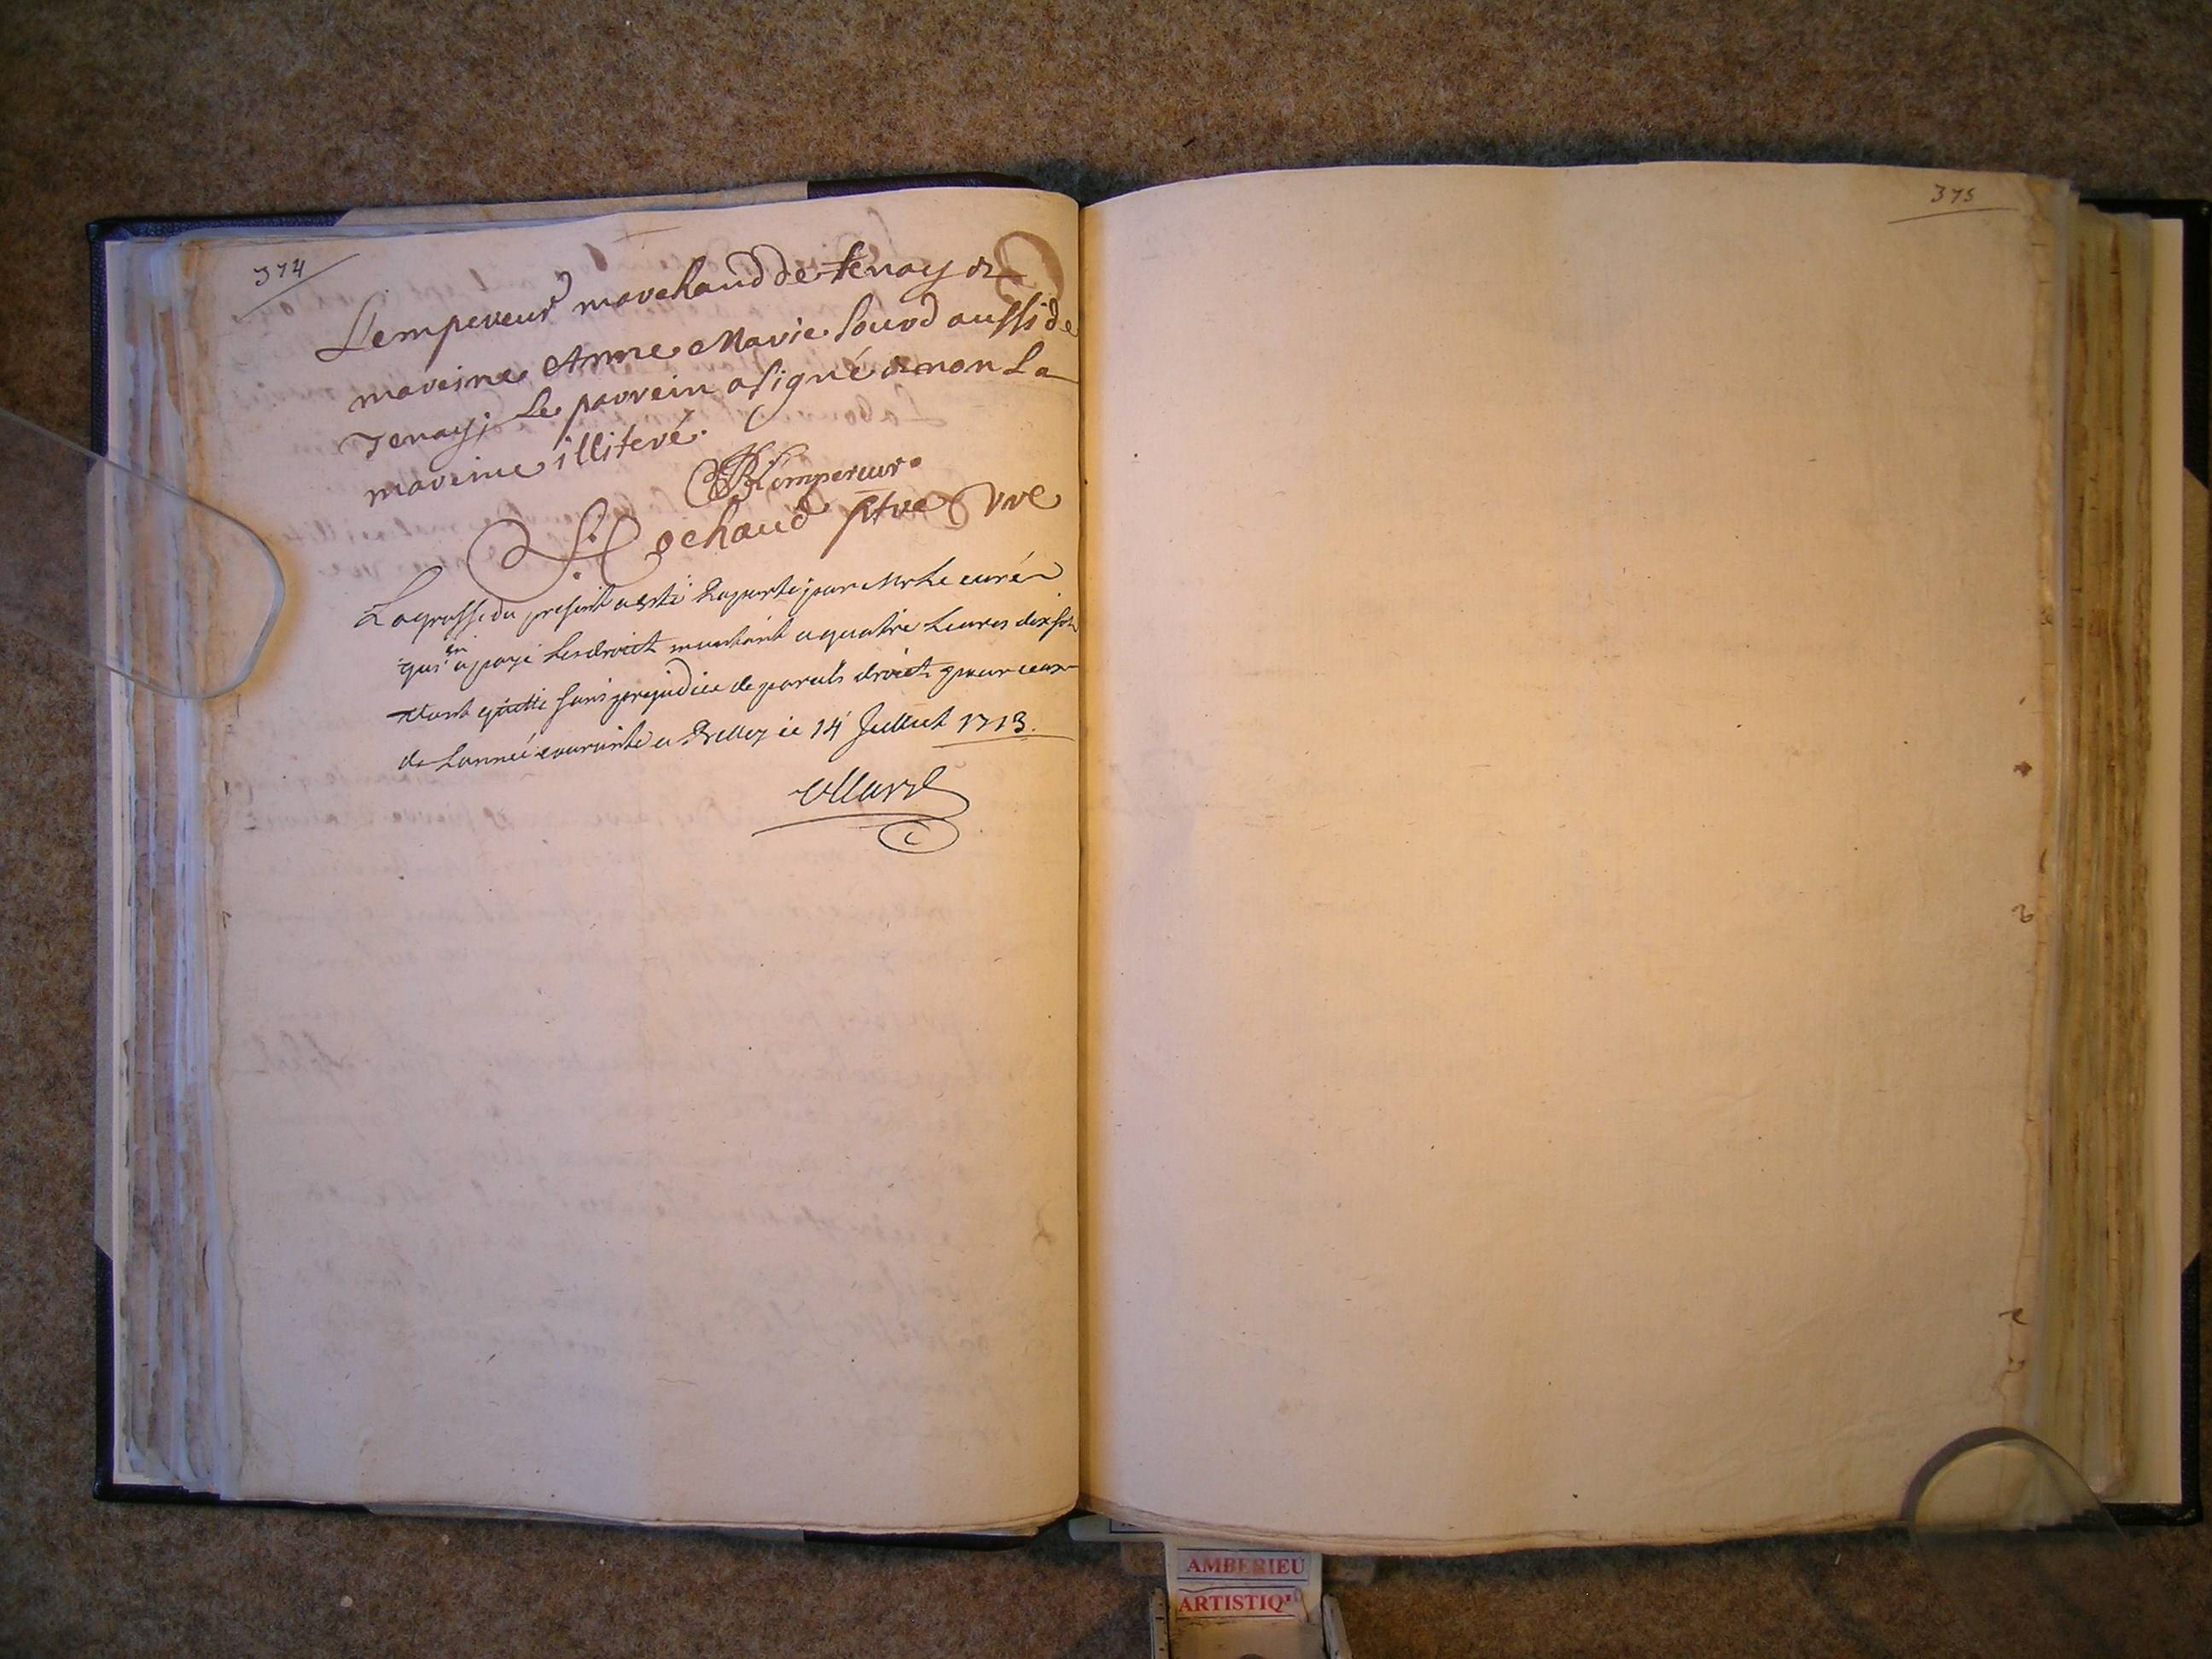 374
Lempereur marchand de tenay &
mareine Anne Marie sourd aussi de
Tenay; Le parrein a signé & non La
mareine illiteré.
Lempereur.
Rochaud ptre vre
La grosse du present a esté Raporté par Mr Le curé
qui en a payé Les droict montant a quatre Livres dix sols
dont quitte sans prejudice de pareils droict pour ceux
de Lannée courante a Belley ce 14 Juillet 1713.
375
AMBERIEU
ARTISTIQ